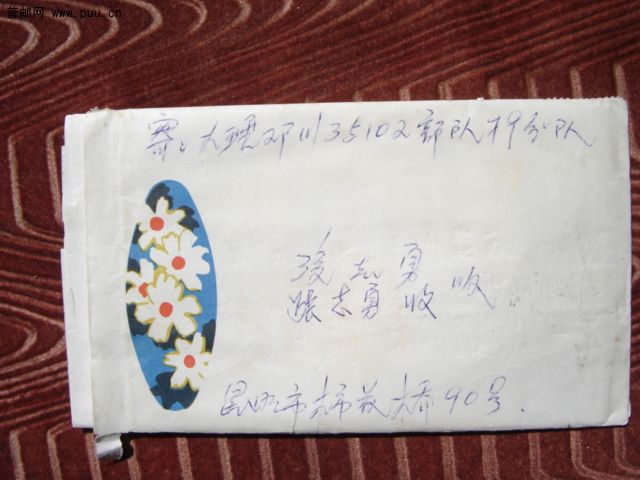 普邮网 www.puu.cn
寄：大理邓川35102部队79分队
志勇
张志勇 收
昆明市大 90号.